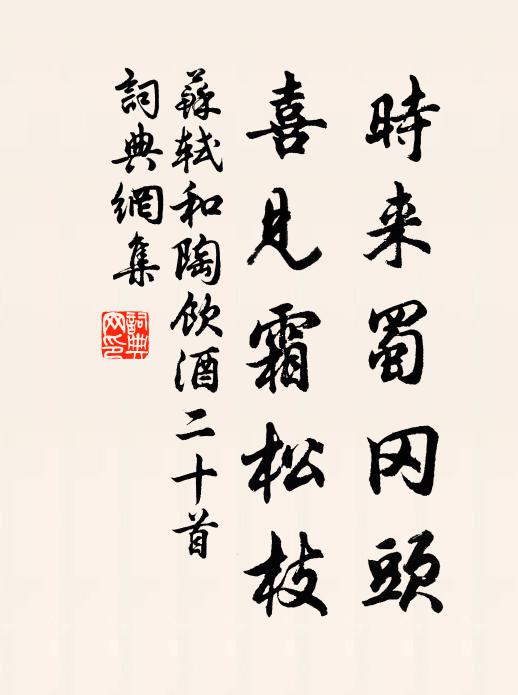 時来蜀冈頭
喜見霜松枝
蘇軾和陶飲酒二十首
詞典網集
詞典
网印